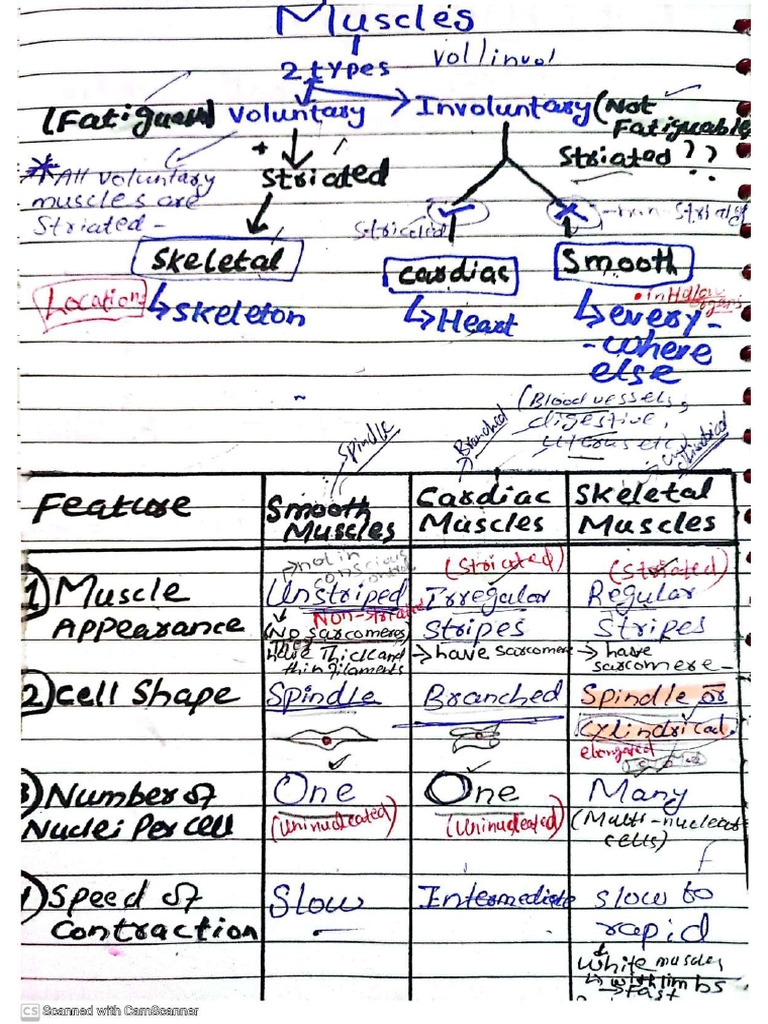 Muscles
2 types
vol/invol
(Fatigues)
Voluntary
Involuntary (Not
Fatiguable
Striated
Striated ??
* All voluntary
muscles are
Striated -
Striated
non-striated
Skeletal
Cardiac
Smooth
Location
Skeleton
Heart
• in Hollow
organs
every-
-where
else
(Blood vessels,
digestive,
uterus etc
Spindle
Branched
Cylindrical
Feature
Smooth
Muscles
Cardiac
Muscles
Skeletal
Muscles
① Muscle
Appearance
→ not in
conscious
control
Unstriped
Non-striated
(No sarcomeres)
They
have Thick and
thin filaments
(Striated)
Irregular
Stripes
→ have sarcomere
(Striated)
Regular
Stripes
→ have
sarcomere -
② Cell Shape
Spindle
Branched
Spindle or
Cylindrical.
elongated
③ Number of
Nuclei Per cell
One
(Uninucleated)
One
(Uninucleated)
Many
(Multi-nuclear
cells)
④ Speed of
Contraction
Slow
Intermediate
slow to
rapid
White muscles
→ with limbs
→ fast
CS Scanned with CamScanner